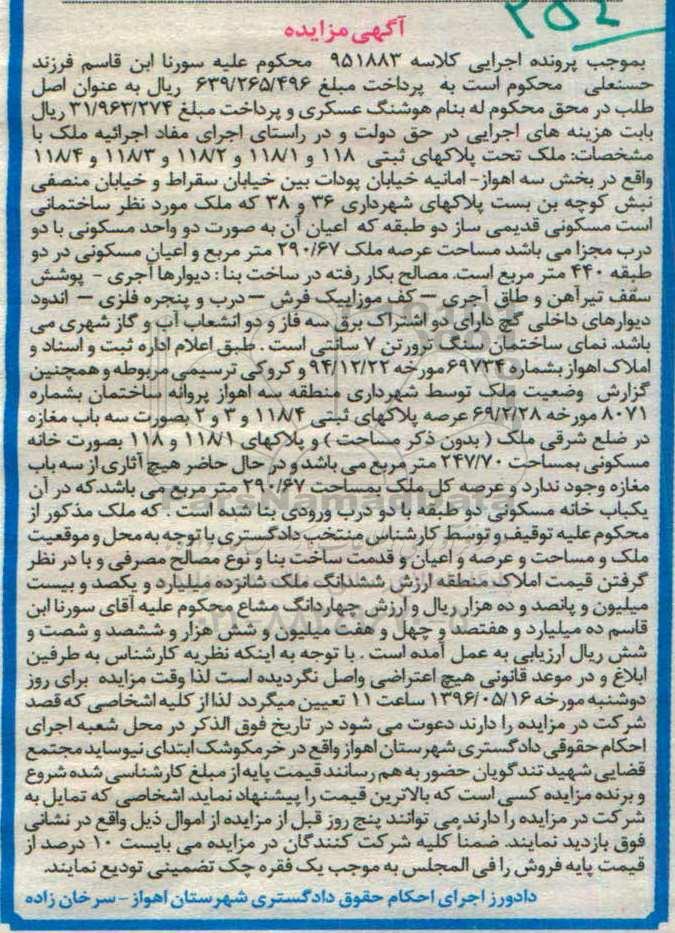 ۲۵۶
آگهی مزایده
بموجب پرونده اجرایی کلاسه ۹۵۱۸۸۳ محکوم علیه سورنا ابن قاسم فرزند
حسنعلی محکوم است به پرداخت مبلغ ۶۳۹/۲۶۵/۴۹۶ ریال به عنوان اصل
طلب در محق محکوم له بنام هوشنگ عسکری و پرداخت مبلغ ۳۱/۹۶۳/۲۷۴ ریال
بابت هزینه های اجرایی در حق دولت و در راستای اجرای مفاد اجرائیه ملک با
مشخصات: ملک تحت پلاکهای ثبتی ۱۱۸ و ۱۱۸/۱ و ۱۱۸/۲ و ۱۱۸/۳ و ۱۱۸/۴
واقع در بخش سه اهواز- امانیه خیابان پودات بین خیابان سقراط و خیابان منصفی
نبش کوچه بن بست پلاکهای شهرداری ۳۶ و ۳۸ که ملک مورد نظر ساختمانی
است مسکونی قدیمی ساز دو طبقه که اعیان آن به صورت دو واحد مسکونی با دو
درب مجزا می باشد مساحت عرصه ملک ۲۹۰/۶۷ متر مربع و اعیان مسکونی در دو
طبقه ۴۴۰ متر مربع است. مصالح بکار رفته در ساخت بنا : دیوارها آجری - پوشش
سقف تیرآهن و طاق آجری – کف موزاییک فرش – درب و پنجره فلزی – اندود
دیوارهای داخلی گچ دارای دو اشتراک برق سه فاز و دو انشعاب آب و گاز شهری می
باشد. نمای ساختمان سنگ تروورتن ۷ سانتی است . طبق اعلام اداره ثبت و اسناد و
املاک اهواز بشماره ۶۹۷۳۴ مورخه ۹۴/۱۲/۲۲ و کروکی ترسیمی مربوطه و همچنین
گزارش وضعیت ملک توسط شهرداری منطقه سه اهواز پروانه ساختمان بشماره
۸۰۷۱ مورخه ۶۹/۲/۲۸ عرصه پلاکهای ثبتی ۱۱۸/۴ و ۳ و ۲ بصورت سه باب مغازه
در ضلع شرقی ملک ( بدون ذکر مساحت ) و پلاکهای ۱۱۸/۱ و ۱۱۸ بصورت خانه
مسکونی بمساحت ۲۴۷/۷۰ متر مربع می باشد و در حال حاضر هیچ آثاری از سه باب
مغازه وجود ندارد و عرصه کل ملک بمساحت ۲۹۰/۶۷ متر مربع می باشد.که در آن
یکباب خانه مسکونی دو طبقه با دو درب ورودی بنا شده است . که ملک مذکور از
محکوم علیه توقیف و توسط کارشناس منتخب دادگستری با توجه به محل و موقعیت
ملک و مساحت و عرصه و اعیان و قدمت ساخت بنا و نوع مصالح مصرفی و با در نظر
گرفتن قیمت املاک منطقه ارزش ششدانگ ملک شانزده میلیارد و یکصد و بیست
میلیون و پانصد و ده هزار ریال و ارزش چهاردانگ مشاع محکوم علیه آقای سورنا ابن
قاسم ده میلیارد و هفتصد و چهل و هفت میلیون و شش هزار و ششصد و شصت و
شش ریال ارزیابی به عمل آمده است . با توجه به اینکه نظریه کارشناس به طرفین
ابلاغ و در موعد قانونی هیچ اعتراضی واصل نگردیده است لذا وقت مزایده برای روز
دوشنبه مورخه ۱۳۹۶/۰۵/۱۶ ساعت ۱۱ تعیین میگردد لذا از کلیه اشخاصی که قصد
شرکت در مزایده را دارند دعوت می شود در تاریخ فوق الذکر در محل شعبه اجرای
احکام حقوقی دادگستری شهرستان اهواز واقع در خرمکوشک ابتدای نیوساید مجتمع
قضایی شهید تندگویان حضور به هم رسانند قیمت پایه از مبلغ کارشناسی شده شروع
و برنده مزایده کسی است که بالاترین قیمت را پیشنهاد نماید. اشخاصی که تمایل به
شرکت در مزایده را دارند می توانند پنج روز قبل از مزایده از اموال ذیل واقع در نشانی
فوق بازدید نمایند. ضمناً کلیه شرکت کنندگان در مزایده می بایست ۱۰ درصد از
قیمت پایه فروش را فی المجلس به موجب یک فقره چک تضمینی تودیع نمایند.
دادورز اجرای احکام حقوق دادگستری شهرستان اهواز - سرخان زاده